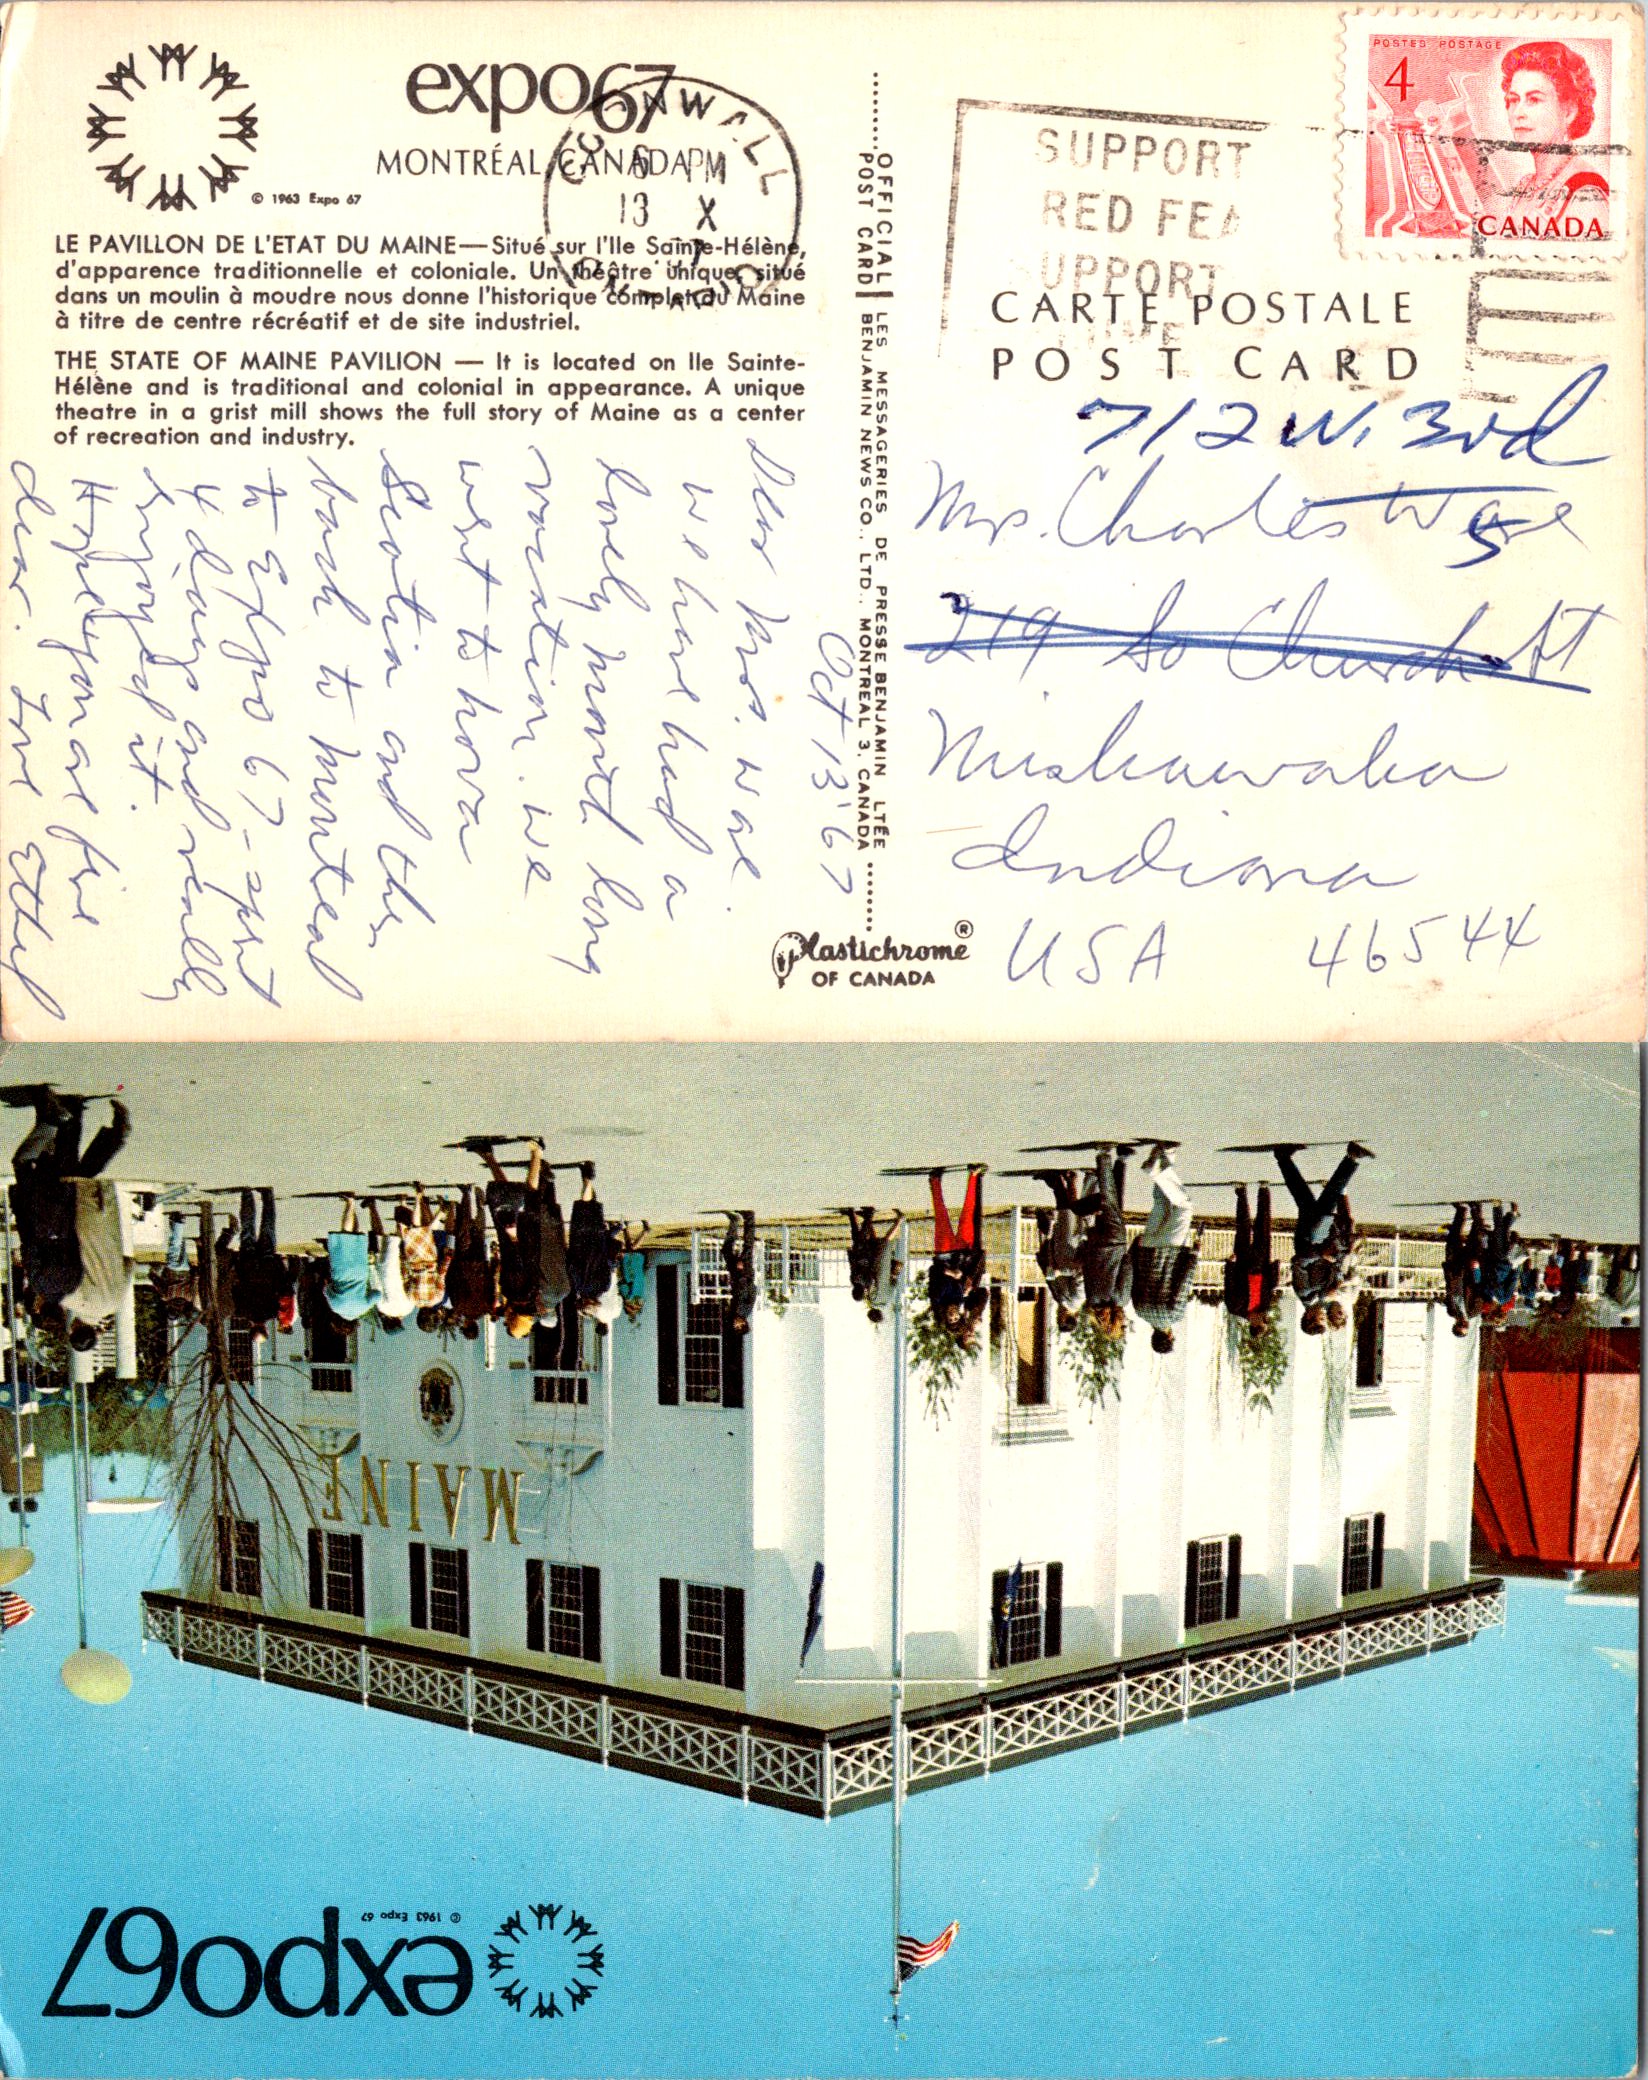 expo67
MONTRÉAL, CANADA
© 1963 Expo 67
LE PAVILLON DE L'ETAT DU MAINE—Situé sur l'Ile Sainte-Hélène,
d'apparence traditionnelle et coloniale. Un théâtre unique, situé
dans un moulin à moudre nous donne l'historique complet du Maine
à titre de centre récréatif et de site industriel.
THE STATE OF MAINE PAVILION — It is located on Ile Sainte-
Hélène and is traditional and colonial in appearance. A unique
theatre in a grist mill shows the full story of Maine as a center
of recreation and industry.
CORNWALL
6 PM
13 X
ONTARIO
Oct 13'67
Dear Mrs. Ware.
We have had a
lovely month long
vacation. We
went to Nova
Scotia and then
back to Montreal
to Expo 67 - spent
4 days and really
enjoyed it.
Hope you are fine
dear. Love Ethel
OFFICIAL LES MESSAGERIES DE PRESSE BENJAMIN LTÉE
POST CARD BENJAMIN NEWS CO., LTD., MONTREAL 3, CANADA
Plastichrome ®
OF CANADA
SUPPORT
RED FEA
SUPPORT
POSTES POSTAGE
4
CANADA
CARTE POSTALE
POST CARD
712 W. 3rd
Mrs. Charles Ware
5
219 So Church St
Mishawaka
Indiana
USA 46544
MAINE
© 1963 Expo 67
expo67